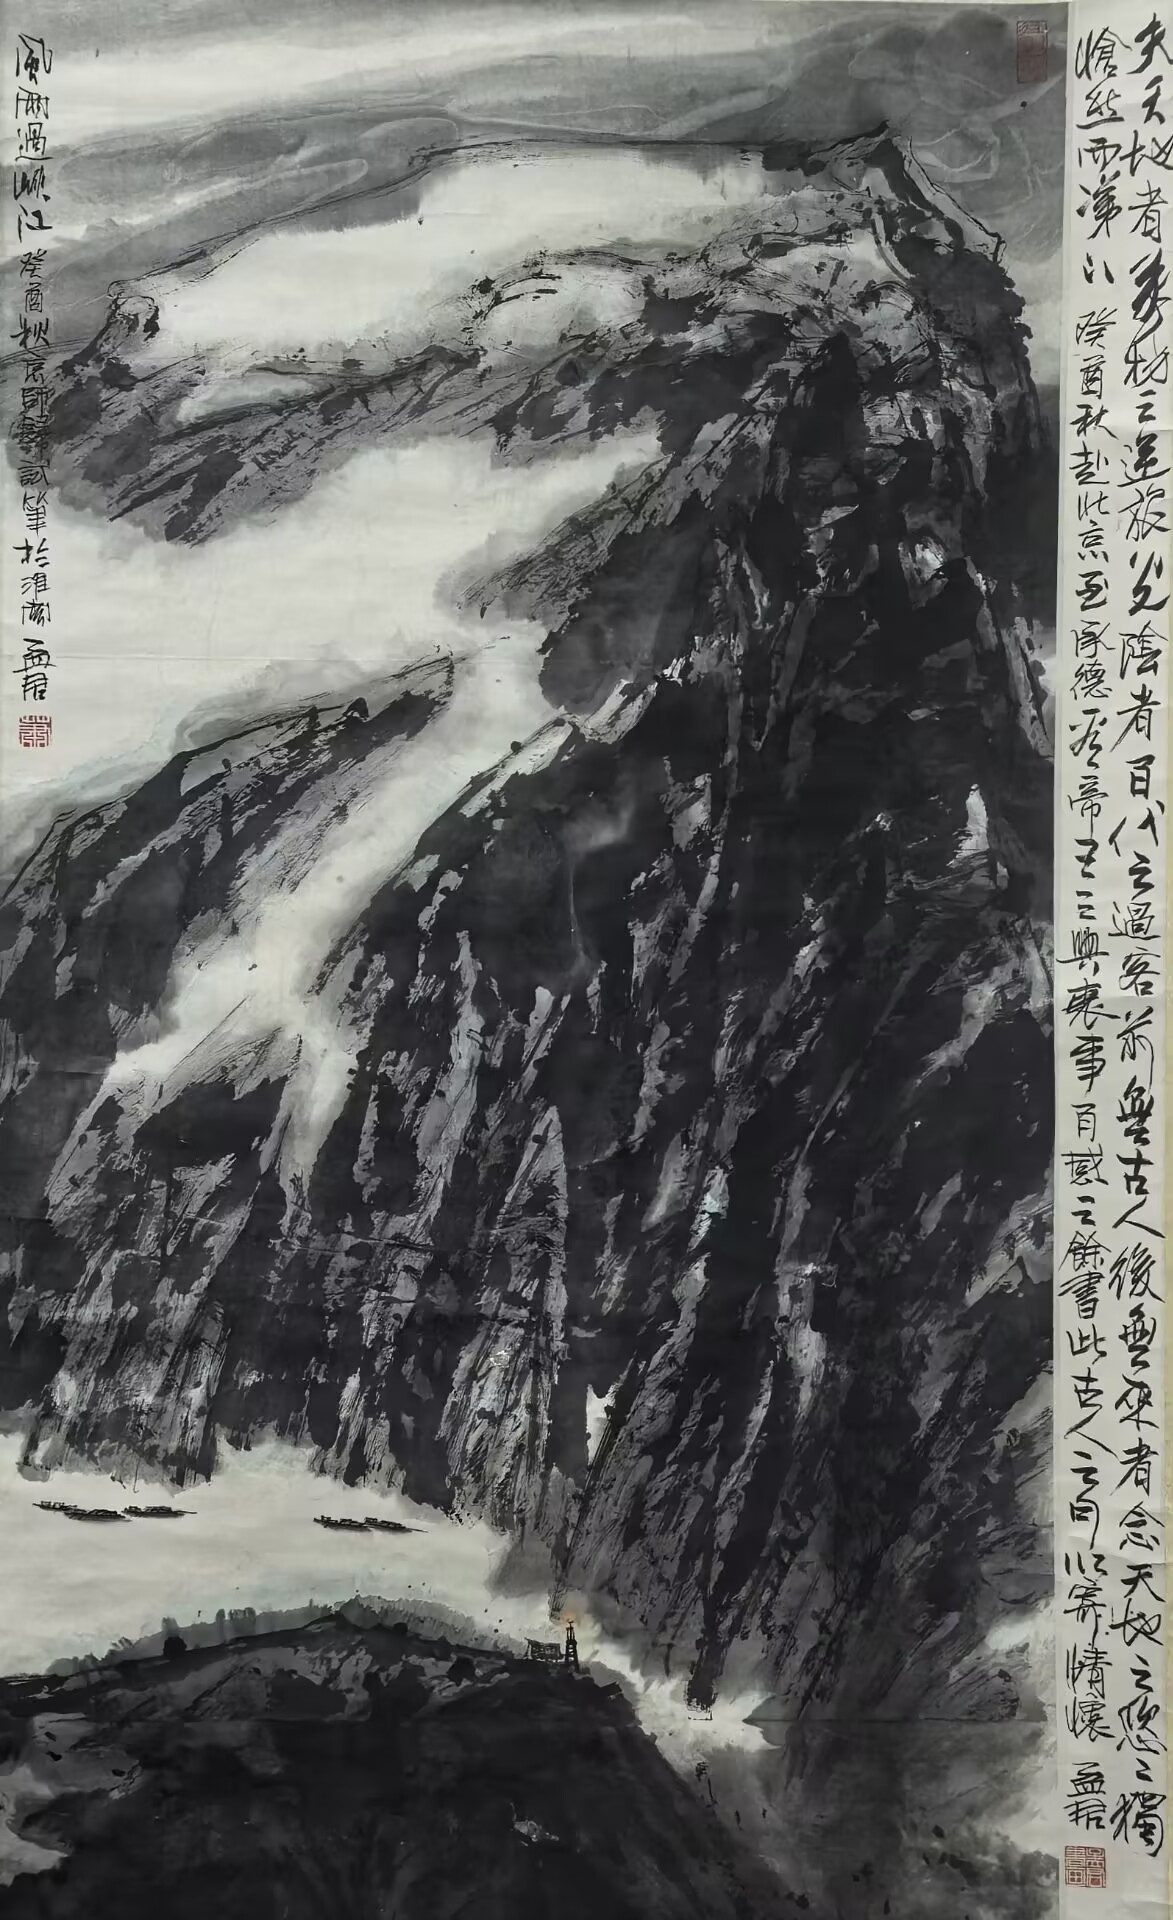 夫天地者萬物之逆旅光陰者百代之過客前無古人後無來者念天地之悠之獨
愴然而涕下 癸酉秋赴北京至承德看帝王之興衰事百感之餘書此古人之句以寄情懷 孟君
風雨過峽江 癸酉秋 試筆於淮南 孟君